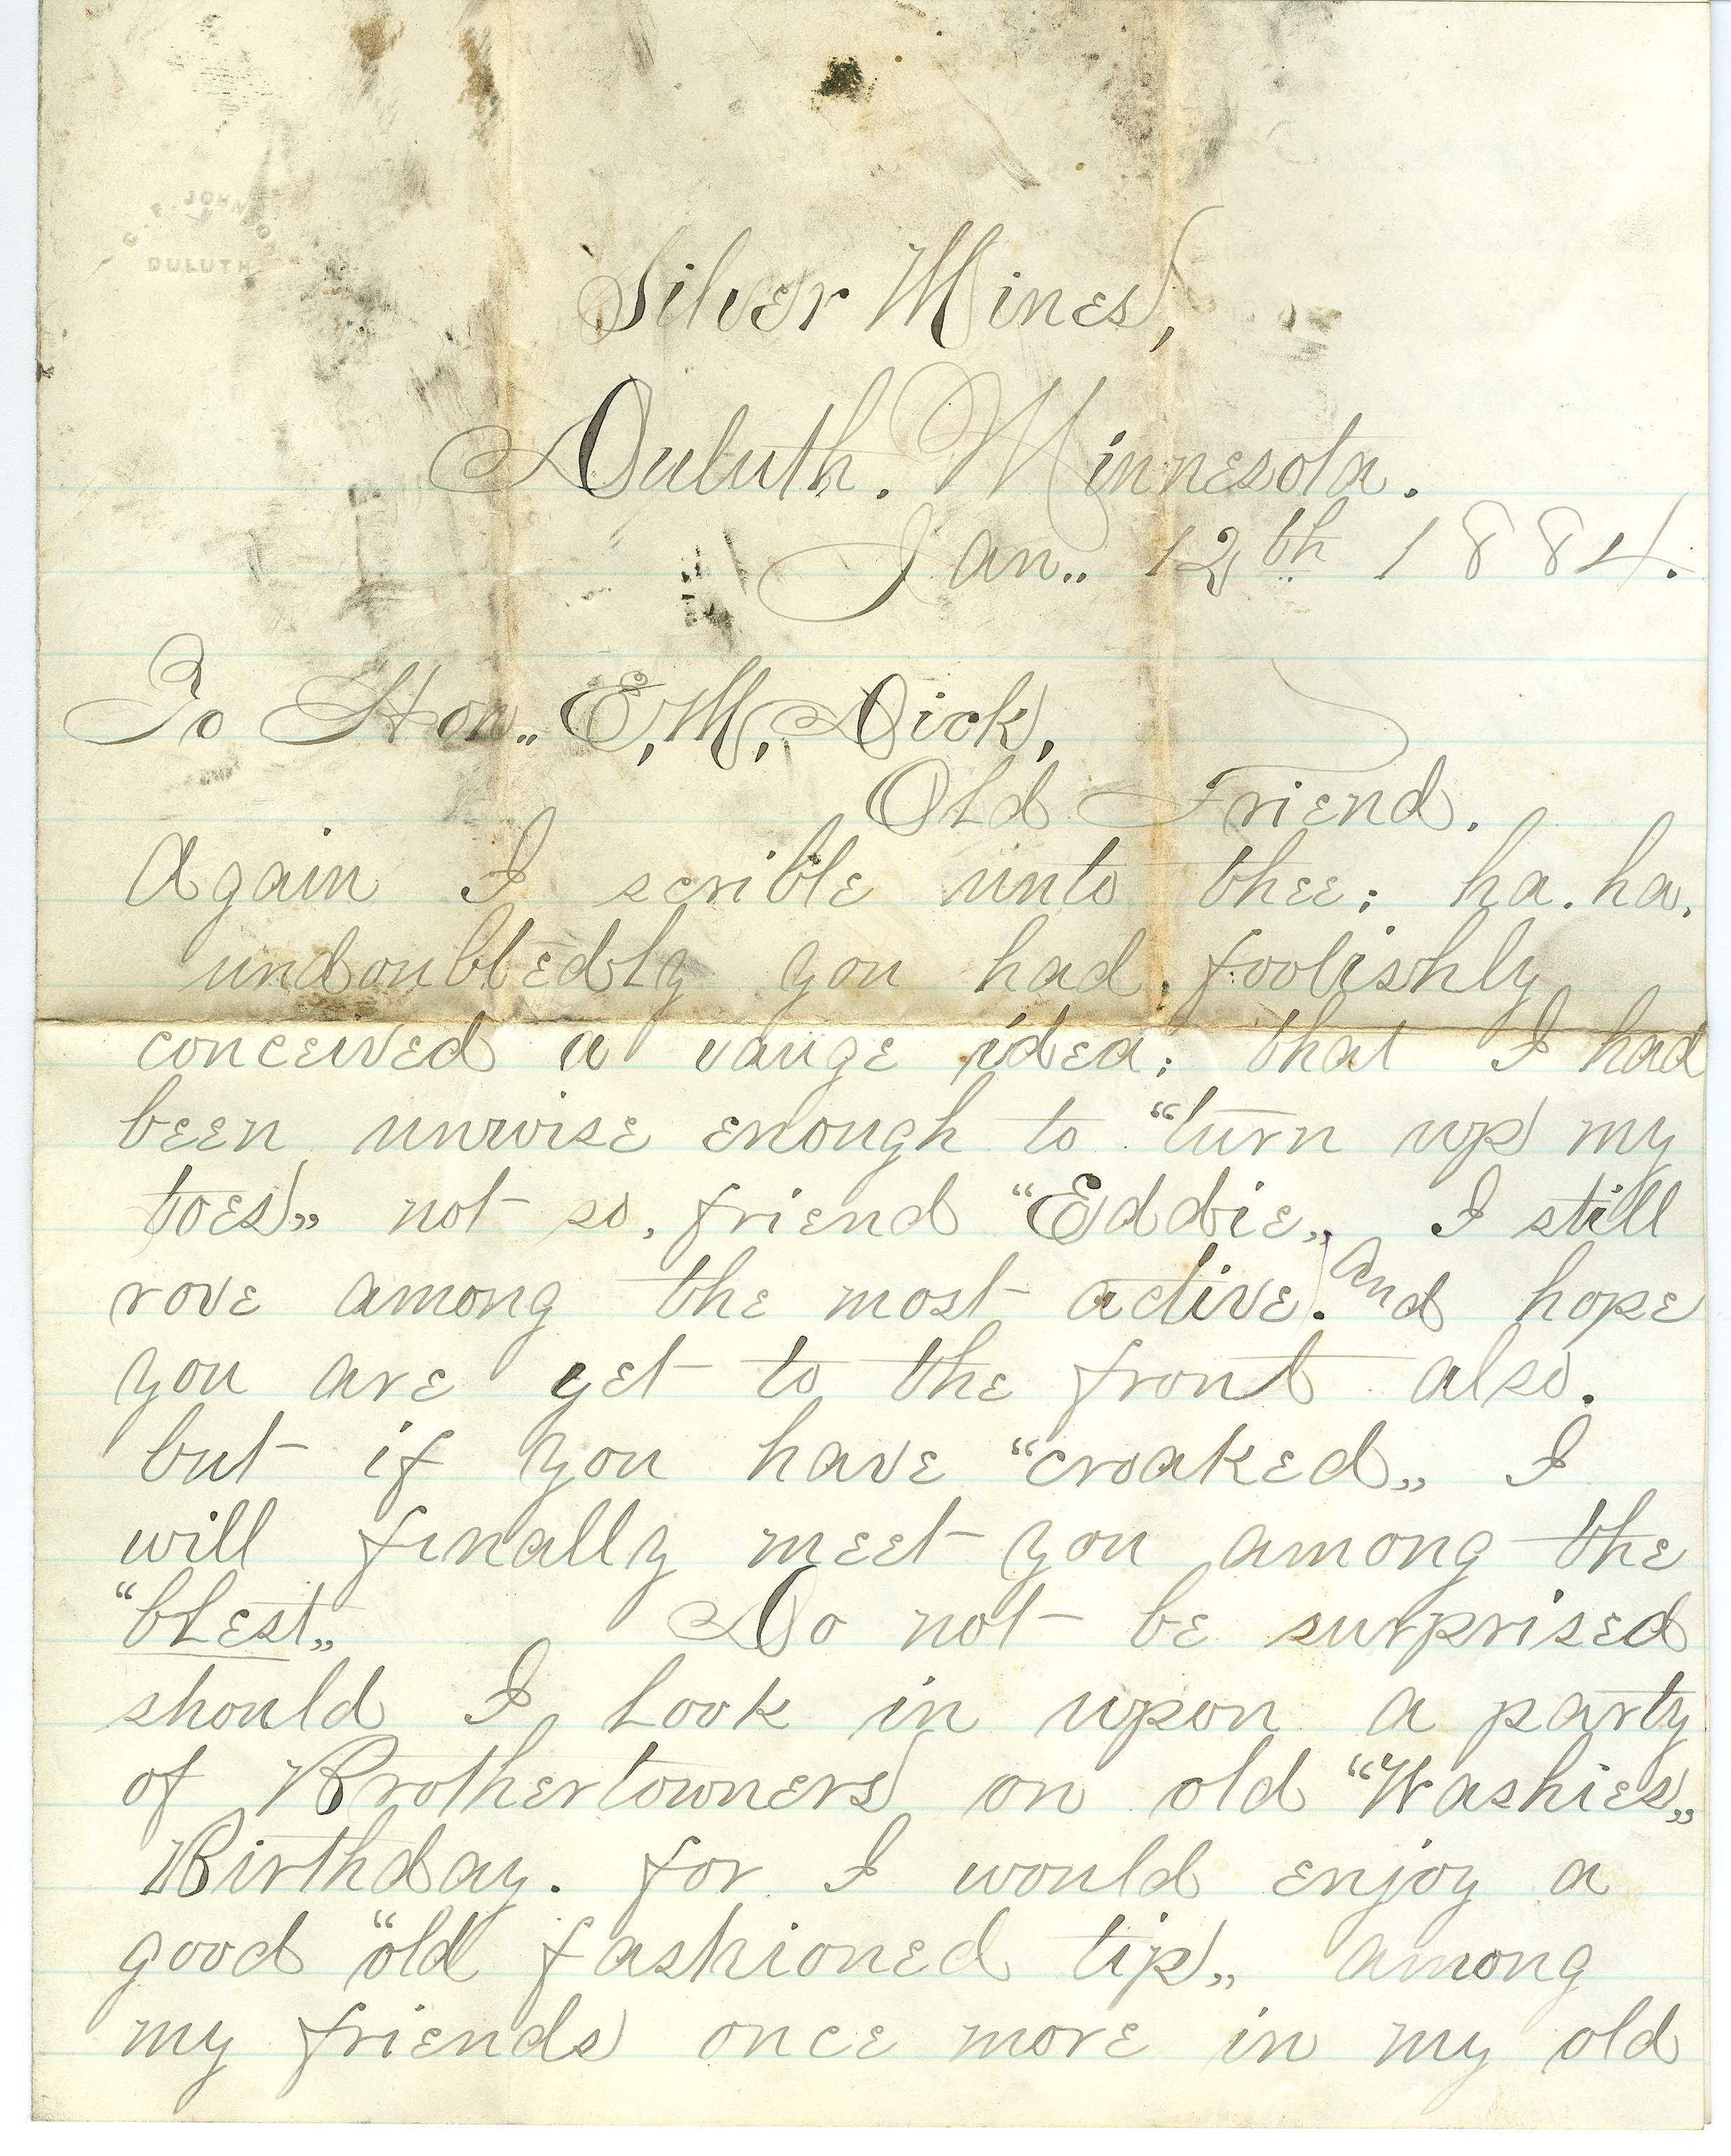 C. F. JOHNSON
DULUTH
Silver Mines,
Duluth. Minnesota.
Jan.. 12th 1884.
To Hon.. E, M, Dick,
Old Friend.
Again I scrible unto thee; ha. ha,
undoubtedly you had, foolishly
conceived a vauge idea; that I had
been unwise enough to “turn up my
toes„ not so, friend “Eddie„ I still
rove among the most active. And hope
you are yet to the front also.
but if you have “croaked„ I
will finally meet you among the
“blest„ Do not be surprised
should I look in upon a party
of Brothertowners on old “Washies„
Birthday. for I would enjoy a
good “old fashioned tip„ among
my friends once more in my old